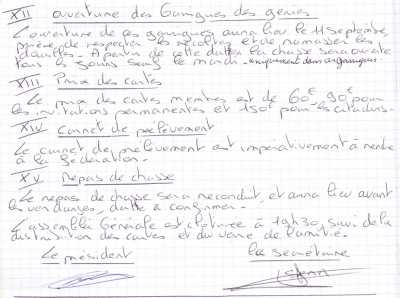 XII ouverture des Garrigues des genies
L'ouverture de ces garrigues aura lieu le 11 Septembre,
Prière de respecter les récoltes et de ramasser les
douilles. A partir de cette date la chasse sera ouverte
tous les jours sauf le mardi. uniquement dans
XIII Prix des cartes
Le prix des cartes membres est de 60€ 90€ pour
les invitations permanentes et 150€ pour les
XIV Carnet de prélèvement
Le carnet de prélèvement est impérativement à rendre
à la fédération.
XV Repas de chasse
Le repas de chasse sera reconduit, et aura lieu avant
les vendanges, date à confirmer.
L'assemblée Générale est cloturée à 19h30, suivi de la
distribution des cartes et du verre de l'amitié.
Le président
La secrétaire